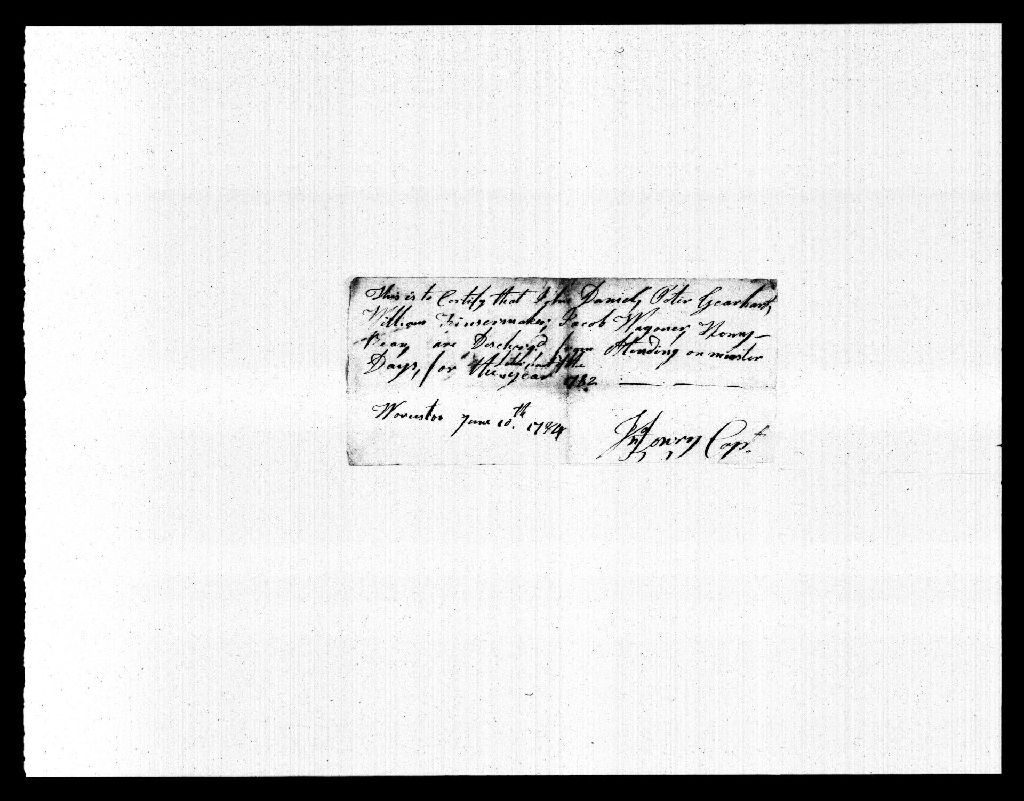 This is to Certify that John Daniel, Peter Gearhart,
William Zinsermaker, Jacob Wagoner, Henry
are Discharged from Attending on muster
Days, for the year 1782
Worcester June 10th. 1784
Lowry Capt.